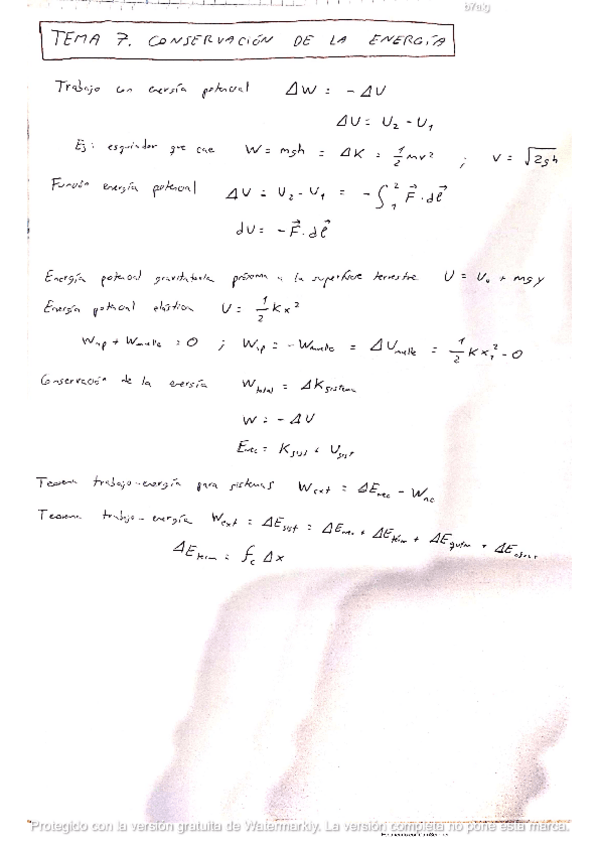 b7aig
TEMA 7. CONSERVACIÓN DE LA ENERGÍA
Trabajo con energía potencial ΔW = -ΔU
ΔU = U₂ - U₁
Ej: esquiador que cae W = mgh = ΔK = 1/2 mv² ; v = √2gh
Función energía potencial ΔU = U₂ - U₁ = -∫₁² F⃗·dℓ⃗
dU = -F⃗·dℓ⃗
Energía potencial gravitatoria próxima a la superficie terrestre U = U₀ + mgy
Energía potencial elástica U = 1/2 Kx²
Wup + Wmuelle = 0 ; Wup = -Wmuelle = ΔUmuelle = 1/2 Kx₁² - 0
Conservación de la energía Wtotal = ΔKsistema
W = -ΔU
Emec = Ksist + Usist
Teorema trabajo-energía para sistemas Wext = ΔEmec - Wnc
Teorema trabajo-energía Wext = ΔEsist = ΔEmec + ΔEtérm + ΔEquím +
ΔEterm = fc Δx
Protegido con la versión gratuita de Watermarkly. La versión completa no pone esta marca.